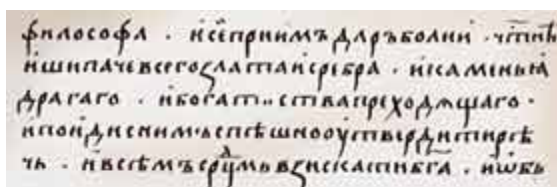 философа · и се приимъ даръ болии · чтнѣ
иши паче всего злата и сребра · и каменыꙗ
драгаго · и богатьства прѣходѧщаго ·
и поиди с нимь спѣшно оутвердити рѣ
чь · и всѣмъ срⷣцмь взискати б҃га · и ѡ вь